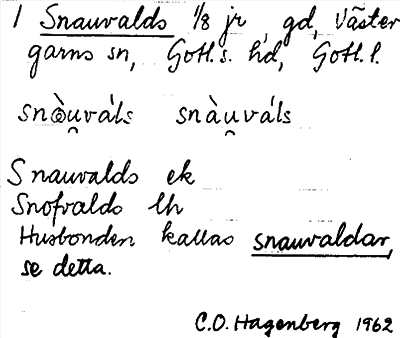 1 Snauvalds 1/8 jr, gd, Väster
garns sn, Gotl. s. hd, Gotl. l.
snò̯uváls snàu̯váls
Snauvalds ek
Snofvalds lh
Husbonden kallas snauvaldar,
se detta.
C.O. Hagenberg 1962